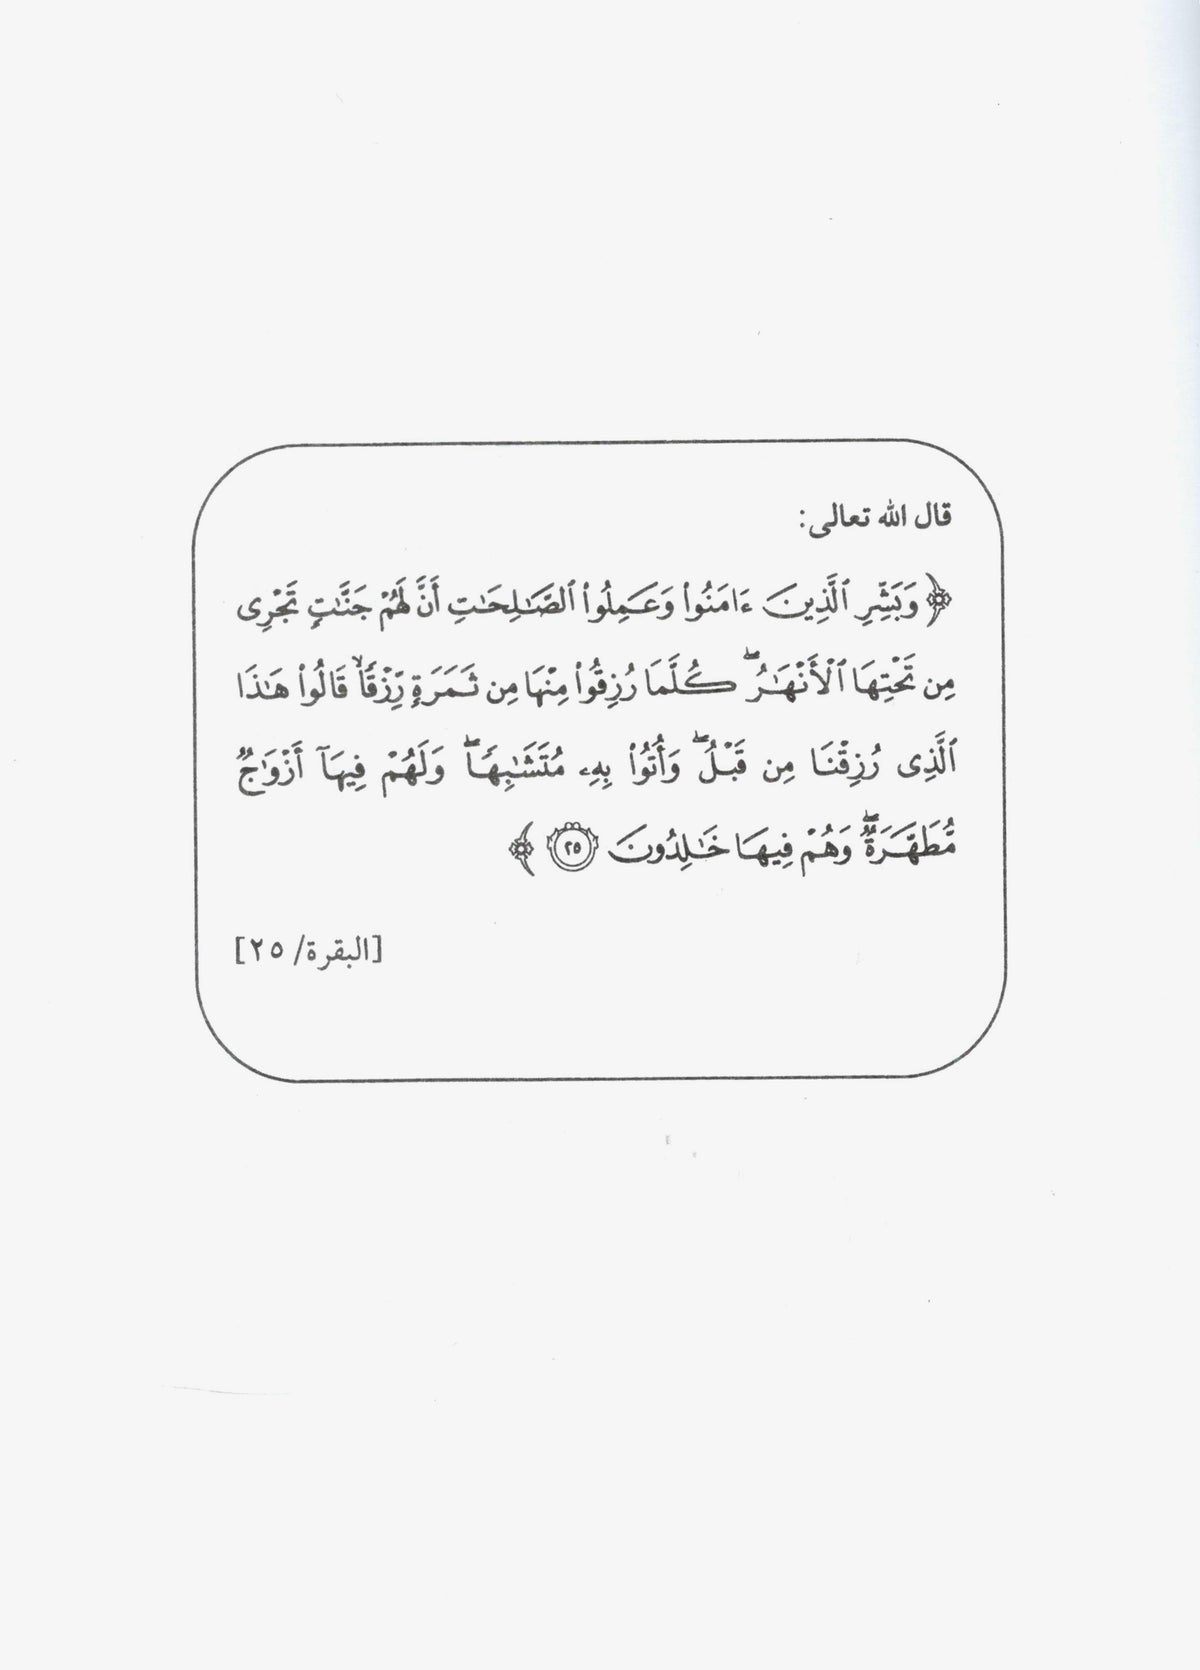 قال الله تعالى:
﴿ وَبَشِّرِ ٱلَّذِينَ ءَامَنُوا۟ وَعَمِلُوا۟ ٱلصَّـٰلِحَـٰتِ أَنَّ لَهُمْ جَنَّـٰتٍ تَجْرِى
مِن تَحْتِهَا ٱلْأَنْهَـٰرُ ۖ كُلَّمَا رُزِقُوا۟ مِنْهَا مِن ثَمَرَةٍ رِّزْقًا ۙ قَالُوا۟ هَـٰذَا
ٱلَّذِى رُزِقْنَا مِن قَبْلُ ۖ وَأُتُوا۟ بِهِۦ مُتَشَـٰبِهًا ۖ وَلَهُمْ فِيهَآ أَزْوَٰجٌ
مُّطَهَّرَةٌ ۖ وَهُمْ فِيهَا خَـٰلِدُونَ ٢٥ ﴾
[البقرة/ ٢٥]